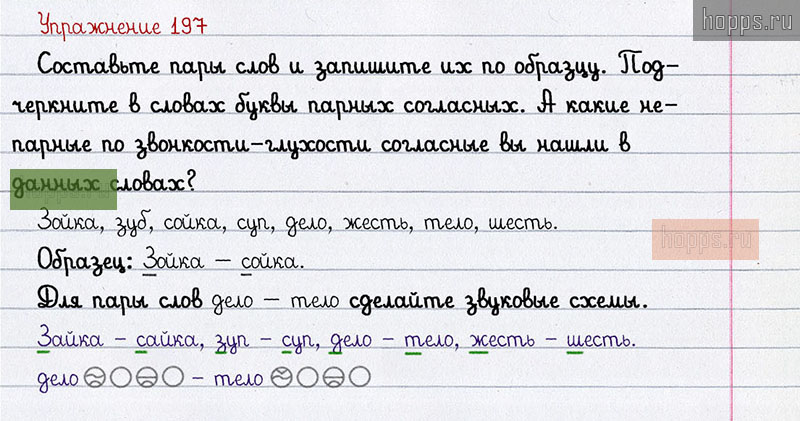 hopps.ru
Упражнение 197
Составьте пары слов и запишите их по образцу. Под-
черкните в словах буквы парных согласных. А какие не-
парные по звонкости-глухости согласные вы нашли в
данных словах?
Зойка, зуб, сойка, суп, дело, жесть, тело, шесть.
hopps.ru
Образец: Зойка – сойка.
Для пары слов дело – тело сделайте звуковые схемы.
Зайка – сайка, зуп – суп, дело – тело, жесть – шесть.
дело – тело